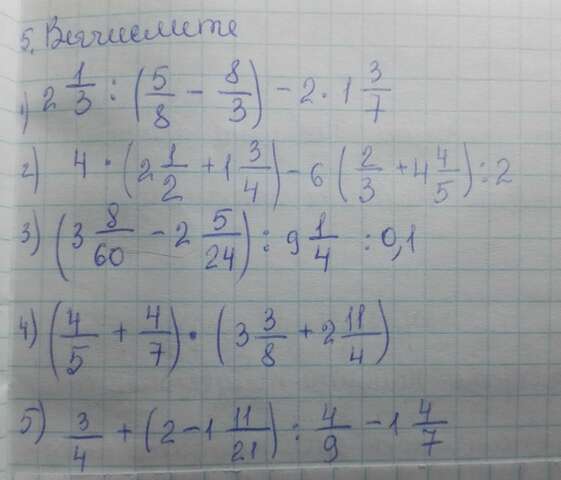 5. Вычислите
1) 2 1/3 : (5/8 - 8/3) - 2 · 1 3/7
2) 4 · (2 1/2 + 1 3/4) - 6 (2/3 + 4 4/5) : 2
3) (3 8/60 - 2 5/24) : 9 1/4 : 0,1
4) (4/5 + 4/7) · (3 3/8 + 2 11/4)
5) 3/4 + (2 - 1 11/21) : 4/9 - 1 4/7